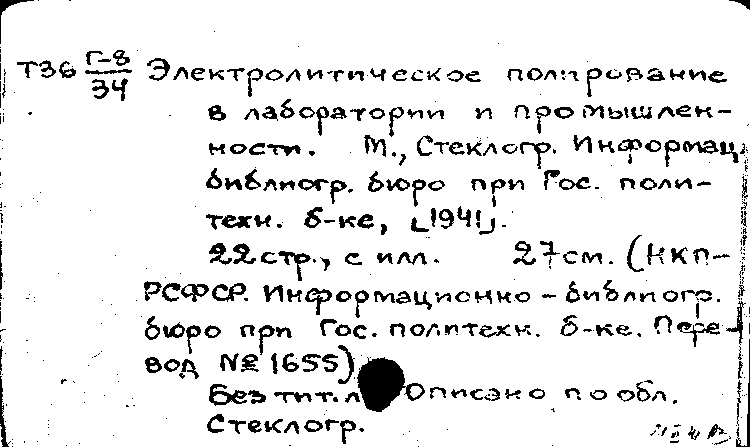 Т36 Г-8/34 Электролитическое полирование
в лаборатории и промышлен-
ности. М., Стеклогр. Информац.
библиогр. бюро при Гос. поли-
техн. б-ке, [1941].
22 стр., с илл. 27 см. (НКП-
РСФСР. Информационно-библиогр.
бюро при Гос. политехн. б-ке. Пере-
вод № 1655)
Без тит. л. Описано по обл.
Стеклогр.